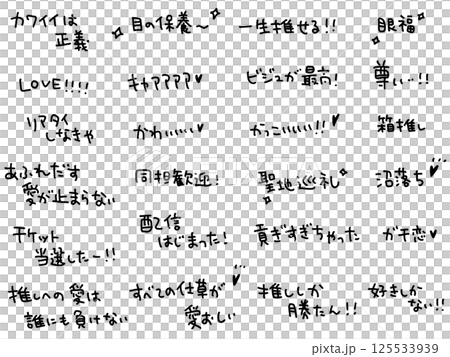 カワイイは
正義
目の保養〜
一生推せる!!
眼福
LOVE!!!!
キャアアアア♥
ビジュが最高!
尊い…!!
リアタイ
しなきゃ
かわいいいい♥
かっこいいいい!!♥
箱推し
あふれだす
愛が止まらない
同担歓迎!
聖地巡礼
沼落ち♥
チケット
当選したー!!
配信
はじまった!
貢ぎすぎちゃった
ガチ恋♥
推しへの愛は
誰にも負けない
すべての仕草が
愛おしい
推ししか
勝たん!!
好きしか
ない!!
PIXTA
125533939